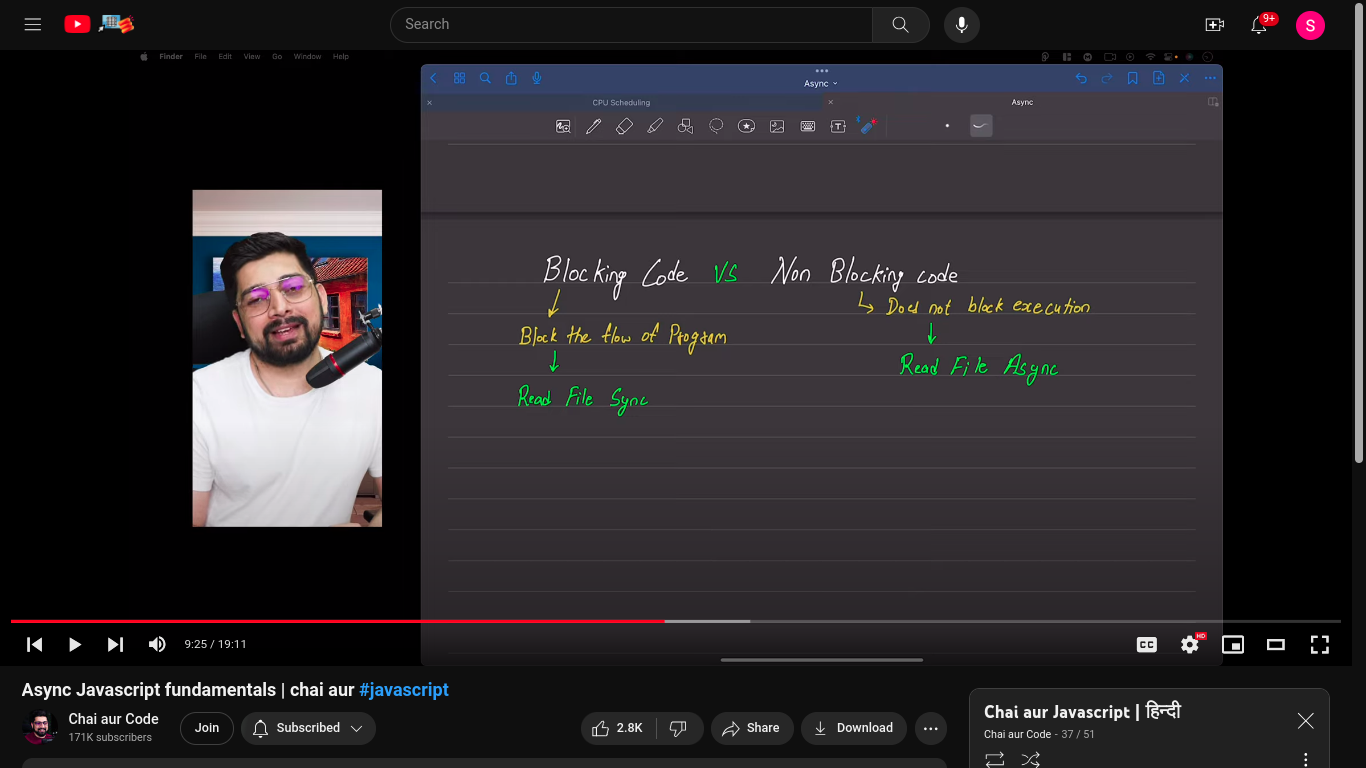 Search
9+
S
Finder File Edit View Go Window Help
Async
CPU Scheduling
Async
T
Blocking Code VS Non Blocking code
Block the flow of Program
Does not block execution
Read File Sync
Read File Async
9:25 / 19:11
CC
HD
Async Javascript fundamentals | chai aur #javascript
Chai aur Code
171K subscribers
Join
Subscribed
2.8K
Share
Download
Chai aur Javascript | हिन्दी
Chai aur Code - 37 / 51